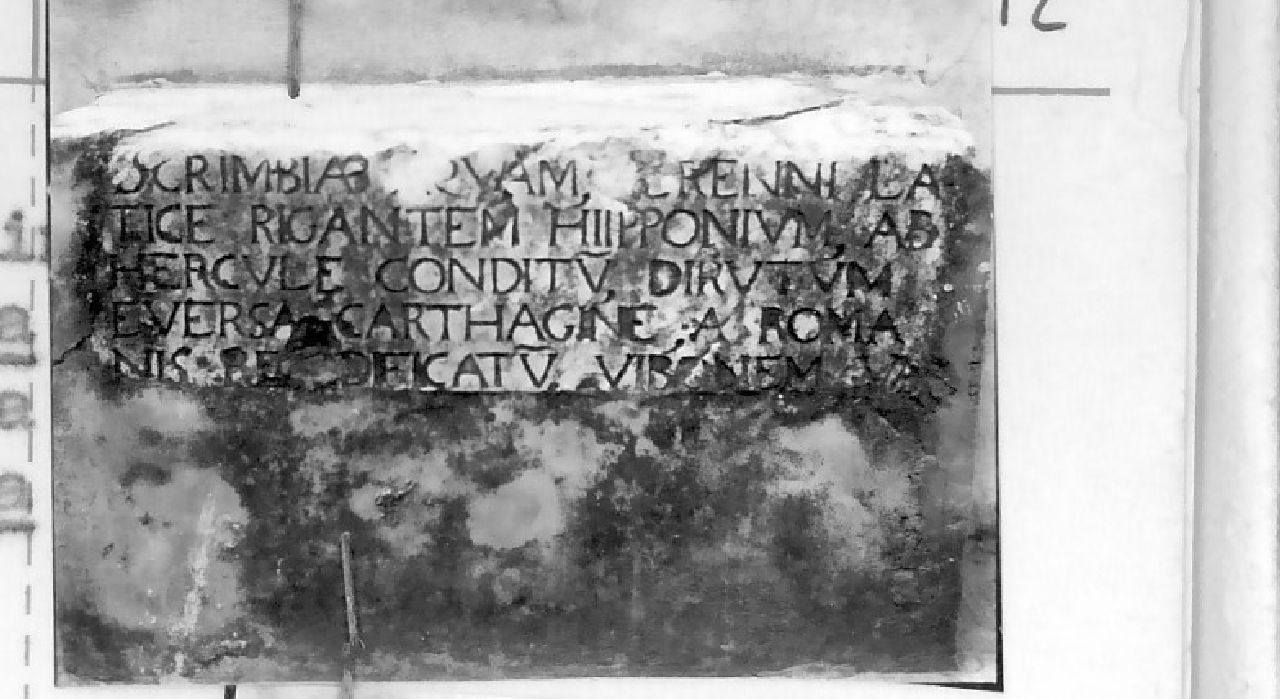 12
SCRIMBIAS AQVAM, PERENNI LA
TICE RIGANTEM HIIPPONIVM, AB
HERCVLE CONDITV̄, DIRVTVM
EVERSA CARTHAGINE, A ROMA
NIS REÆDIFICATV̄, VIBONEM